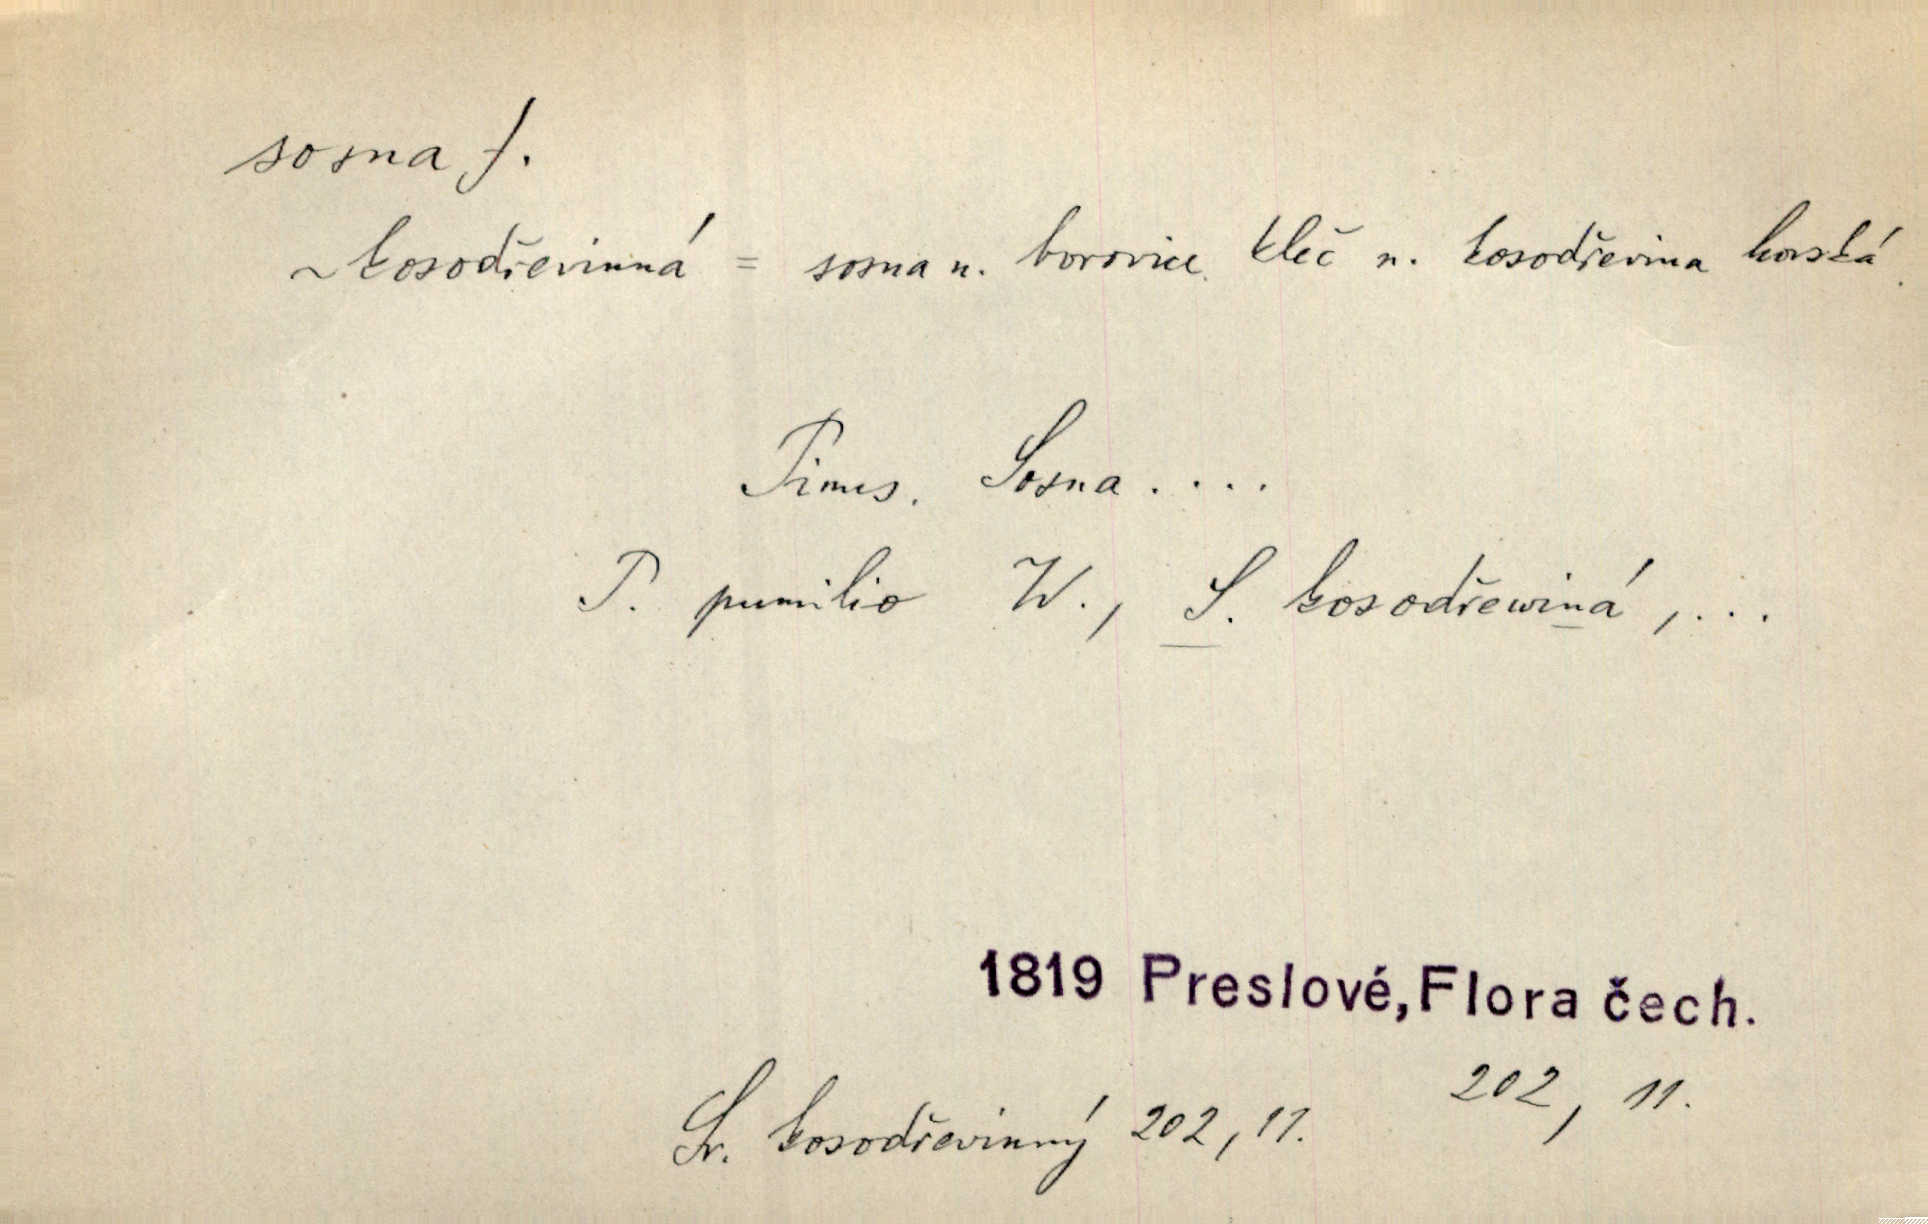 sosna f.
~ kosodřevinná = sosna n. borovice kleč n. kosodřevina horská.
Pinus. Sosna . . . .
P. pumilio W., S. kosodřewiná, . . .
1819 Preslové, Flora čech.
202, 11.
Sr. kosodřevinný 202, 11.